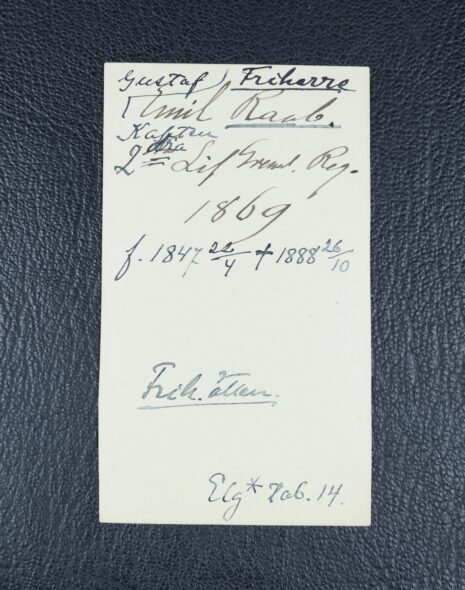 Gustaf) Friherre
(Emil Raab.
Kapten
2dra Lif Grend. Reg.
1869
f. 1847 22/4 † 1888 26/10
Frih. ätten.
Elg* Tab. 14.